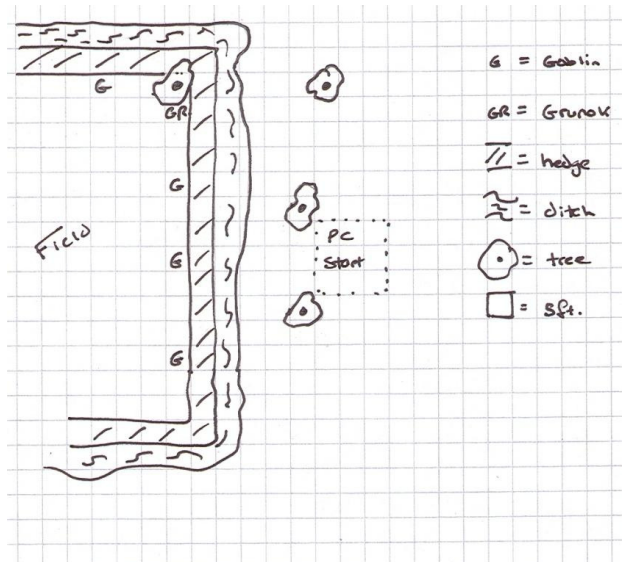 G
GR
G
G
G
Field
PC
Start
G = Goblin
GR = Grunok
= hedge
= ditch
= tree
= 5ft.